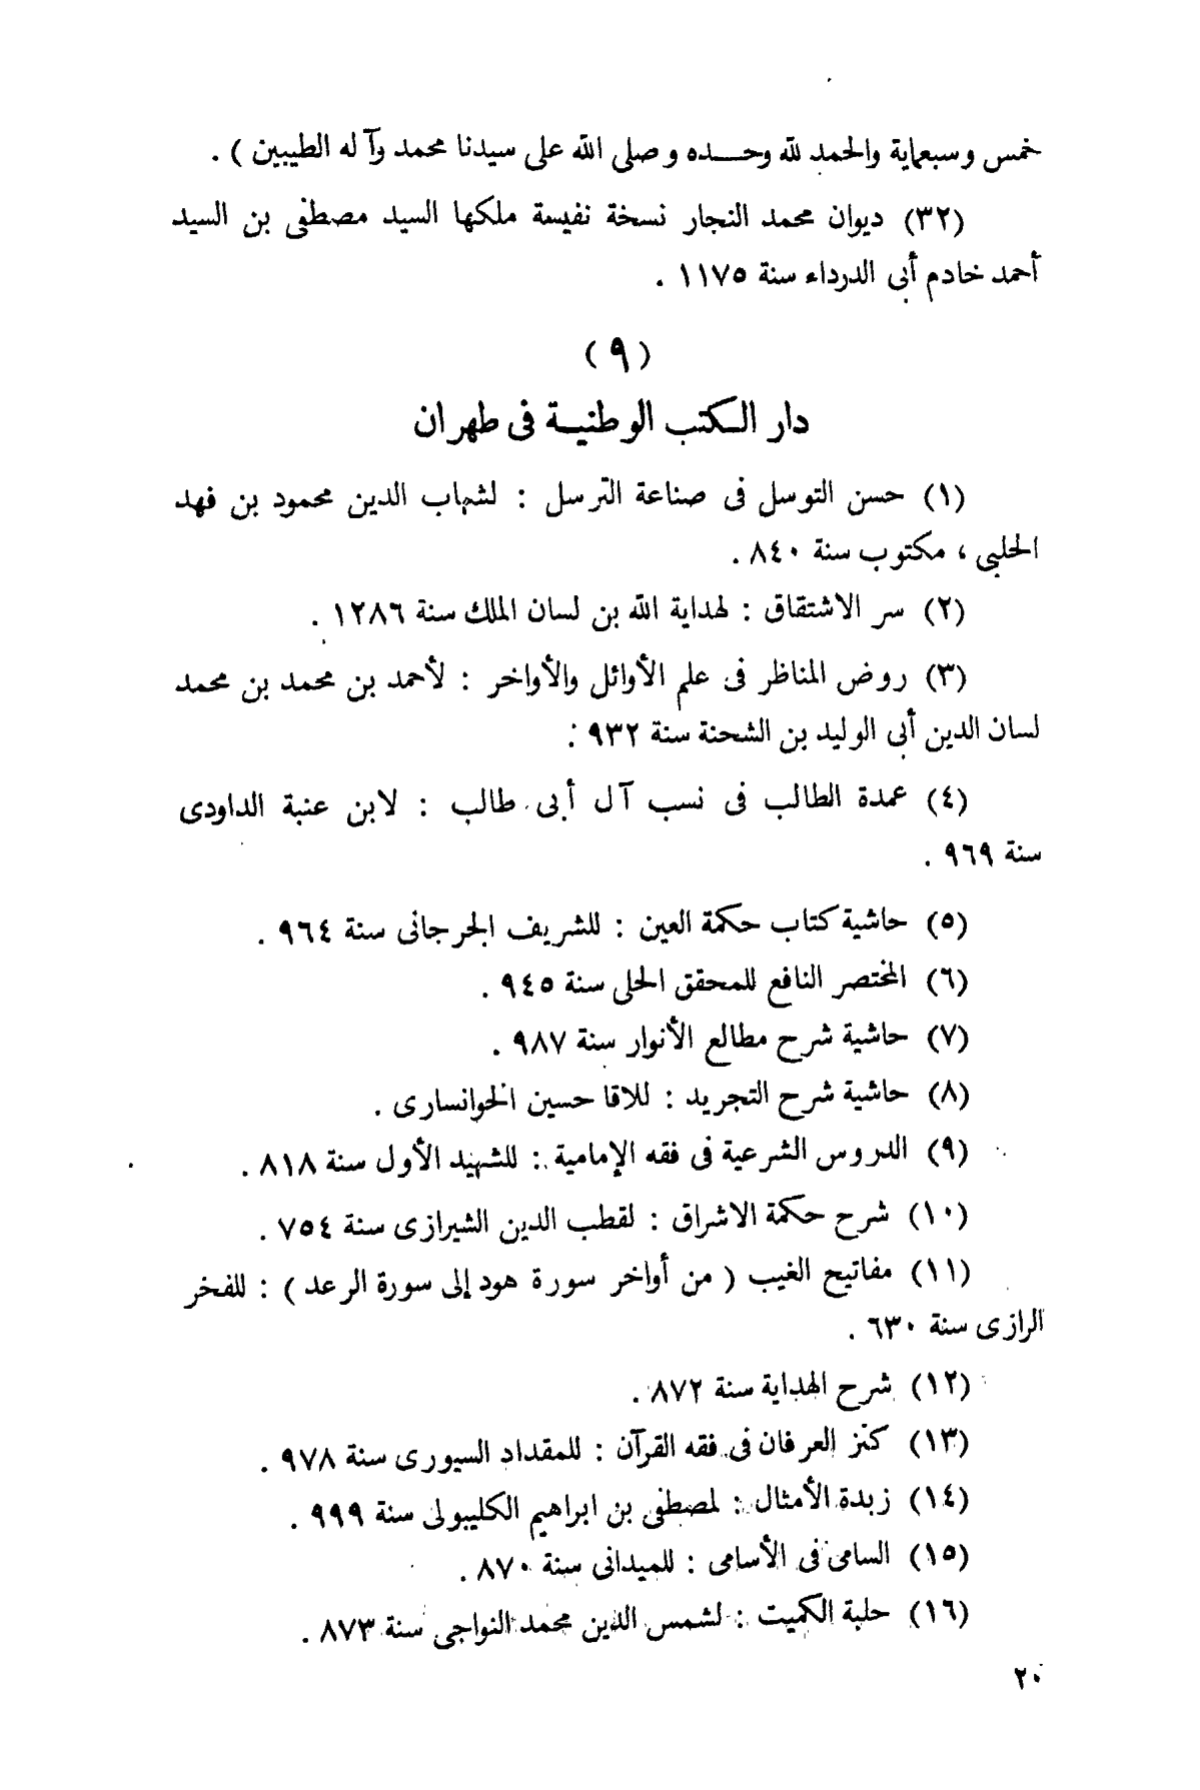 خمس وسبعماية والحمد لله وحـــده وصلى الله على سيدنا محمد وآله الطيبين ) .
(٣٢) ديوان محمد النجار نسخة نفيسة ملكها السيد مصطفى بن السيد
أحمد خادم أبى الدرداء سنة ١١٧٥ .
( ٩ )
دار الـكتب الوطنيـة فى طهران
(١) حسن التوسل فى صناعة الترسل : لشهاب الدين محمود بن فهد
الحلبى ، مكتوب سنة ٨٤٠ .
(٢) سر الاشتقاق : لهداية الله بن لسان الملك سنة ١٢٨٦ .
(٣) روض المناظر فى علم الأوائل والأواخر : لأحمد بن محمد بن محمد
لسان الدين أبى الوليد بن الشحنة سنة ٩٣٢ .
(٤) عمدة الطالب فى نسب آل أبى طالب : لابن عنبة الداودى
سنة ٩٦٩ .
(٥) حاشية كتاب حكمة العين : للشريف الجرجانى سنة ٩٦٤ .
(٦) المختصر النافع للمحقق الحلى سنة ٩٤٥ .
(٧) حاشية شرح مطالع الأنوار سنة ٩٨٧ .
(٨) حاشية شرح التجريد : للاقا حسين الخوانسارى .
(٩) الدروس الشرعية فى فقه الإمامية : للشهيد الأول سنة ٨١٨ .
(١٠) شرح حكمة الاشراق : لقطب الدين الشيرازى سنة ٧٥٤ .
(١١) مفاتيح الغيب ( من أواخر سورة هود إلى سورة الرعد ) : للفخر
الرازى سنة ٦٣٠ .
(١٢) شرح الهداية سنة ٨٧٢ .
(١٣) كنز العرفان فى فقه القرآن : للمقداد السيورى سنة ٩٧٨ .
(١٤) زبدة الأمثال : لمصطفى بن ابراهيم الكليبولى سنة ٩٩٩ .
(١٥) السامى فى الأسامى : للميدانى سنة ٨٧٠ .
(١٦) حلبة الكميت : لشمس الدين محمد النواجى سنة ٨٧٣ .
٢٠